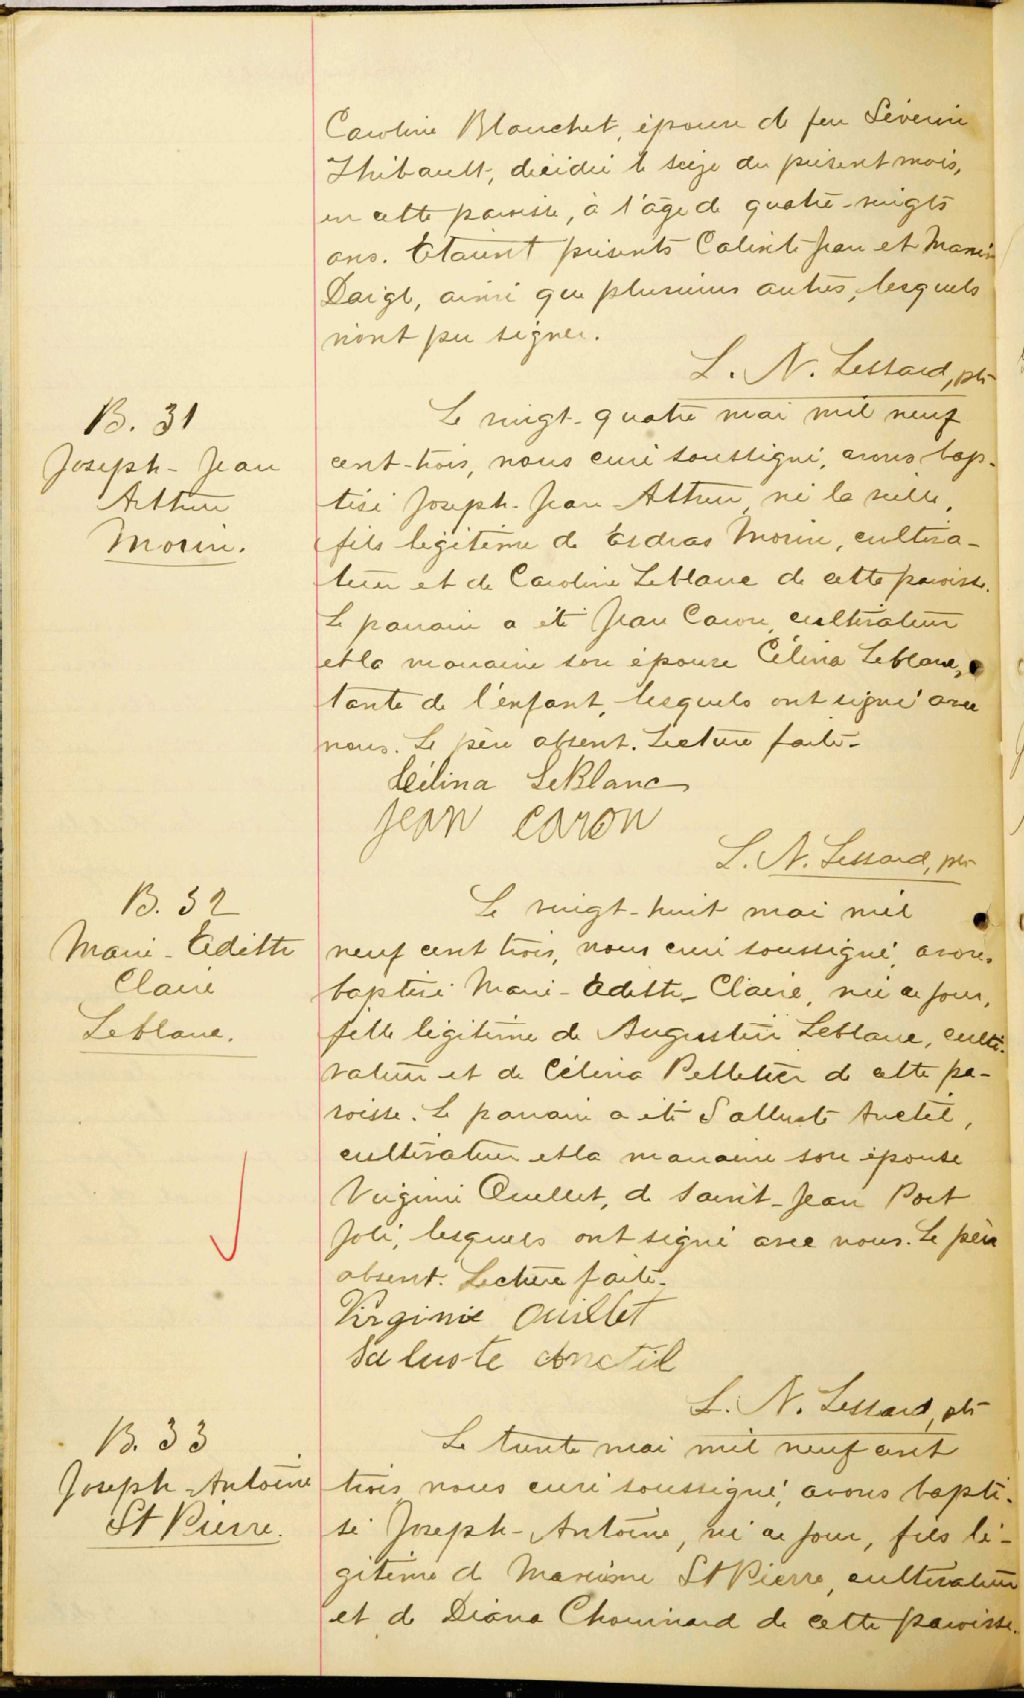 Caroline Blanchet, épouse de feu Séverin
Thibault, décédée le seize du présent mois,
en cette paroisse, à l'âge de quatre-vingts
ans. Etaient présents Calixte Jean et
Daigle, ainsi que plusieurs autres, lesquels
n'ont pu signer.
L. N. Lessard, ptr
B. 31
Joseph-Jean
Arthur
Morin.
Le vingt-quatre mai mil neuf
cent-trois, nous curé soussigné, avons bap-
tisé Joseph-Jean-Arthur, né la veille,
fils légitime de Esdras Morin, cultiva-
teur et de Caroline Leblanc de cette paroisse.
Le parrain a été Jean Caron, cultivateur
et la marraine son épouse Célina Leblanc,
tante de l'enfant, lesquels ont signé avec
nous. Le père absent. Lecture faite-
Célina LeBlanc
Jean Caron
L. N. Lessard, ptr
B. 32
Marie-Edith
Claire
Leblanc.
Le vingt-huit mai mil
neuf cent trois, nous curé soussigné, avons
baptisé Marie-Edith-Claire, née ce jour,
fille légitime de Augustin Leblanc, culti-
vateur et de Célina Pelletier de cette pa-
roisse. Le parrain a été Salluste Anctil,
cultivateur et la marraine son épouse
Virginie Ouellet, de Saint-Jean Port
Joli, lesquels ont signé avec nous. Le père
absent. Lecture faite-
Virginie Ouillet
Saluste Anctil
L. N. Lessard, ptr
B. 33
Joseph-Antoine
St Pierre.
Le trente mai mil neuf cent
trois, nous curé soussigné, avons bapti-
sé Joseph-Antoine, né ce jour, fils lé-
gitime de St Pierre, cultivateur
et de Diana Chouinard de cette paroisse.